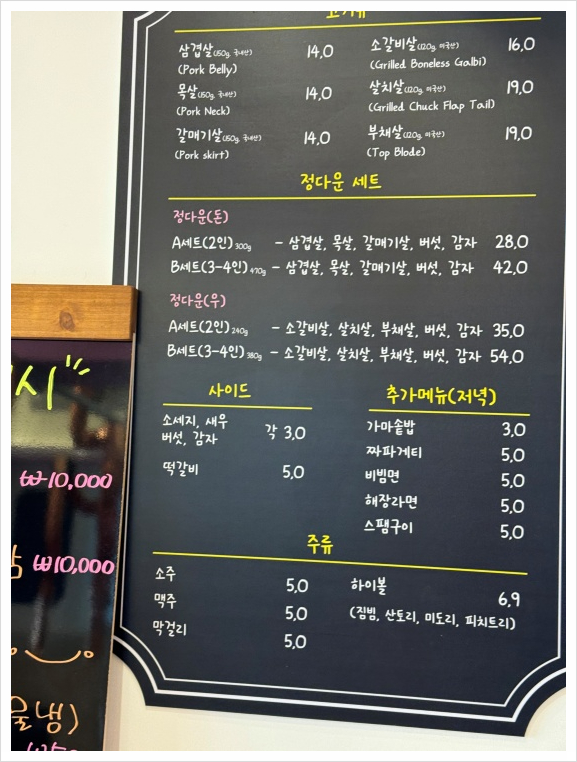 삼겹살(150g, 국내산) 14.0
(Pork Belly)
목살(150g, 국내산) 14.0
(Pork Neck)
갈매기살(150g, 국내산) 14.0
(Pork skirt)
소갈비살(120g, 미국산) 16.0
(Grilled Boneless Galbi)
살치살(120g, 미국산) 19.0
(Grilled Chuck Flap Tail)
부채살(120g, 미국산) 19.0
(Top Blode)
정다운 세트
정다운(돈)
A세트(2인) 300g - 삼겹살, 목살, 갈매기살, 버섯, 감자 28.0
B세트(3-4인) 470g - 삼겹살, 목살, 갈매기살, 버섯, 감자 42.0
정다운(우)
A세트(2인) 240g - 소갈비살, 살치살, 부채살, 버섯, 감자 35.0
B세트(3-4인) 380g - 소갈비살, 살치살, 부채살, 버섯, 감자 54.0
사이드
소세지, 새우
버섯, 감자 각 3.0
떡갈비 5.0
추가메뉴(저녁)
가마솥밥 3.0
짜파게티 5.0
비빔면 5.0
해장라면 5.0
스팸구이 5.0
주류
소주 5.0
맥주 5.0
막걸리 5.0
하이볼 6.9
(짐빔, 산토리, 미도리, 피치트리)
시
₩10,000
₩10,000
물냉)